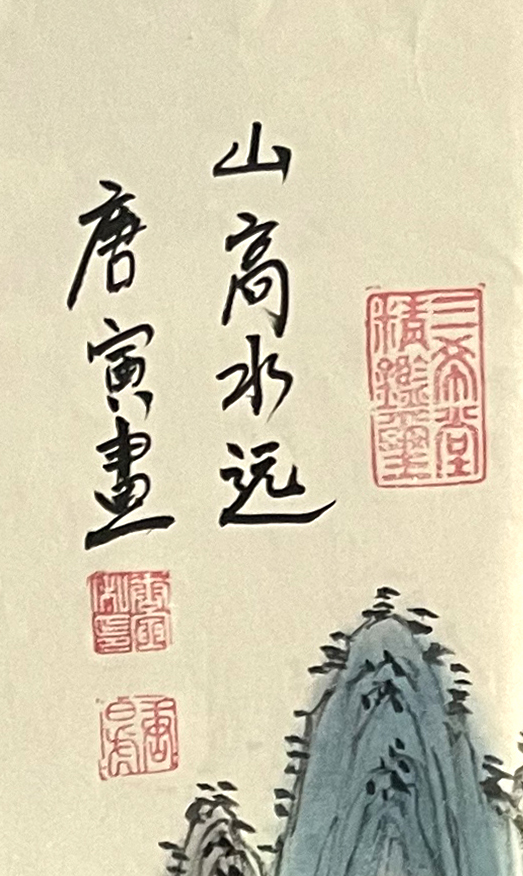 三希堂
精鑑璽
山高水远
唐寅畫